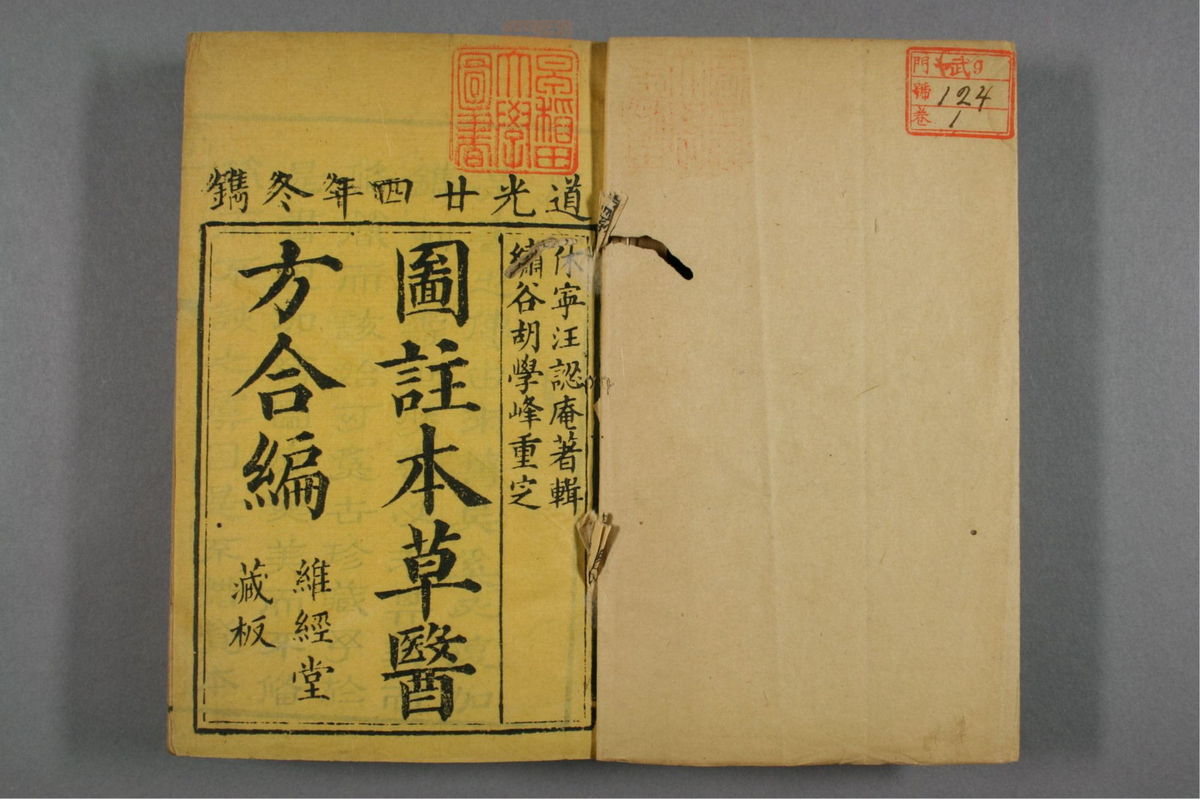 道光廿四年冬鐫
休寧汪認庵著輯
繡谷胡學峰重定
圖註本草醫
方合編
維經堂
藏板
早稻田
大學
圖書
門 9
號 124
卷 1